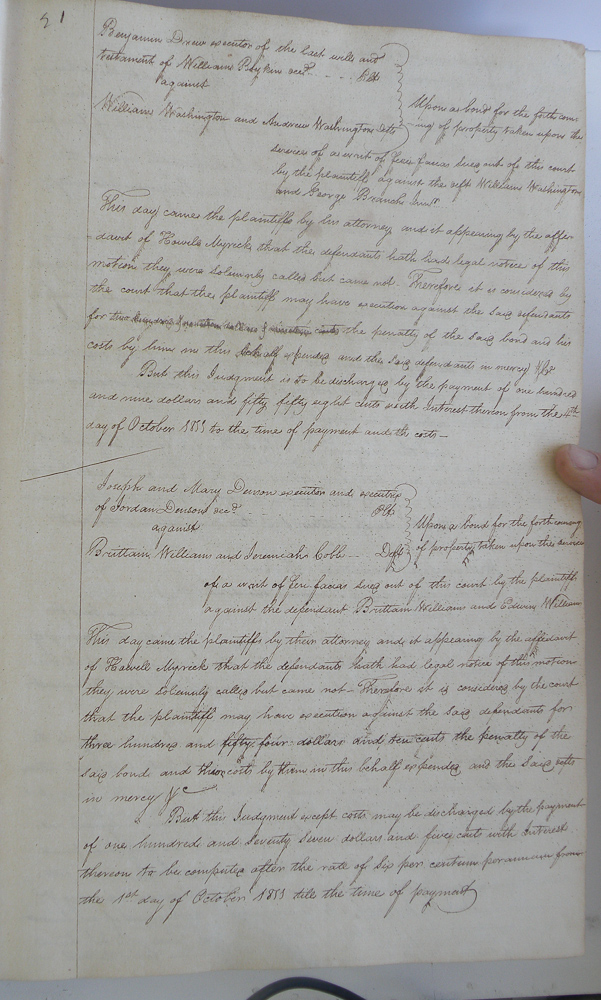 51
Benjamin Drew executor of the last will and
testament of William Boykin decd. Plt
against
William Washington and Andrew Washington defts
Upon a bond for the forth com
ing of property taken upon the
service of a writ of fieri facias sued out of this court
by the plaintiffs against the deft William Washington
and George Branch
This day came the plaintiffs by his attorney and it appearing by the affi
davit of Howell Myrick that the defendants hath had legal notice of this
motion they were solemnly called but came not. Therefore it is considered by
the court that the plaintiff may have execution against the said defendants
for the penalty of the said bond and his
costs by him in this behalf expended and the said defendants in mercy &c
But this Judgment is to be discharged by the payment of one hundred
and nine dollars and fifty fifty eight cents with Interest thereon from the 4th
day of October to the time of payment and the costs—
Joseph and Mary Denson executor and executrix
of Jordan Denson decd. Plts
against
Brittain Williams and Jeremiah Cobb — Defts
Upon a bond for the forthcoming
of property taken upon the service
of a writ of fieri facias sued out of this court by the plaintiffs
against the defendant Brittain Williams and Edwin William
This day came the plaintiffs by their attorney and it appearing by the affidavit
of Howell Myrick that the defendants hath had legal notice of this motion
they were solemnly called but came not — Therefore it is considered by the court
that the plaintiff may have execution against the said defendants for
three hundred and fifty four dollars and ten cents the penalty of the
said bond and their costs by them in this behalf expended and the said defts
in mercy &c
But this Judgment except costs may be discharged by the payment
of one hundred and seventy seven dollars and five cents with Interest
thereon to be computed after the rate of six per centum per annum from
the 1st day of October till the time of payment